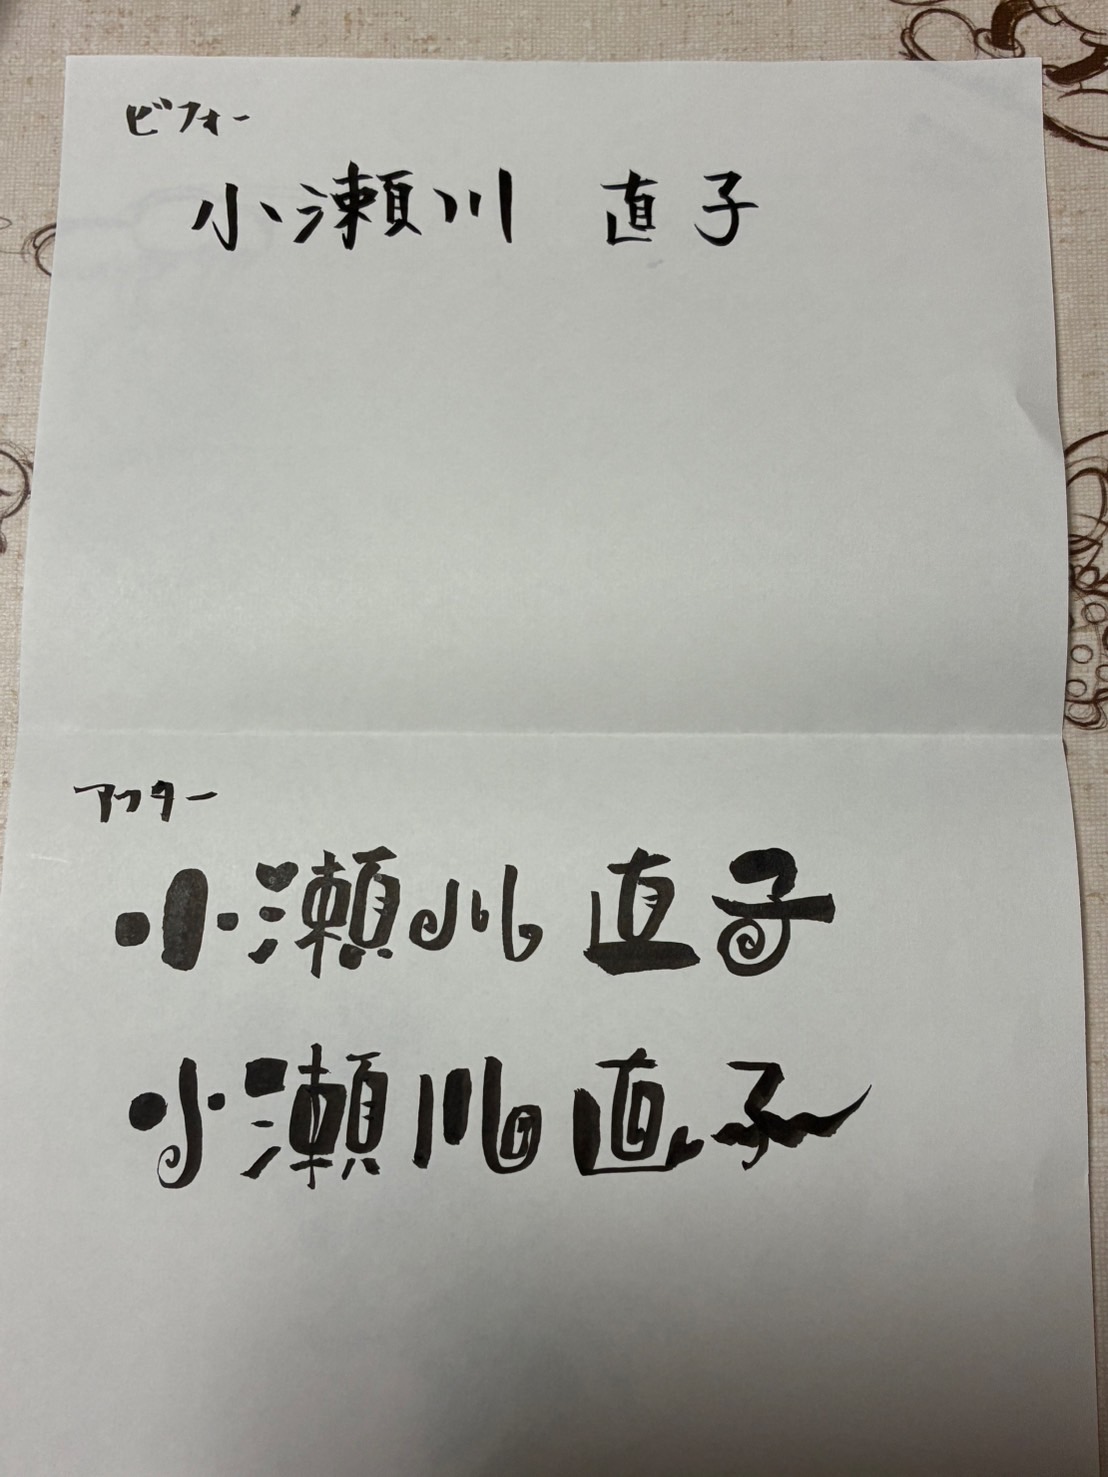 ビフォー
小瀬川 直子
アフター
小瀬川 直子
小瀬川 直子